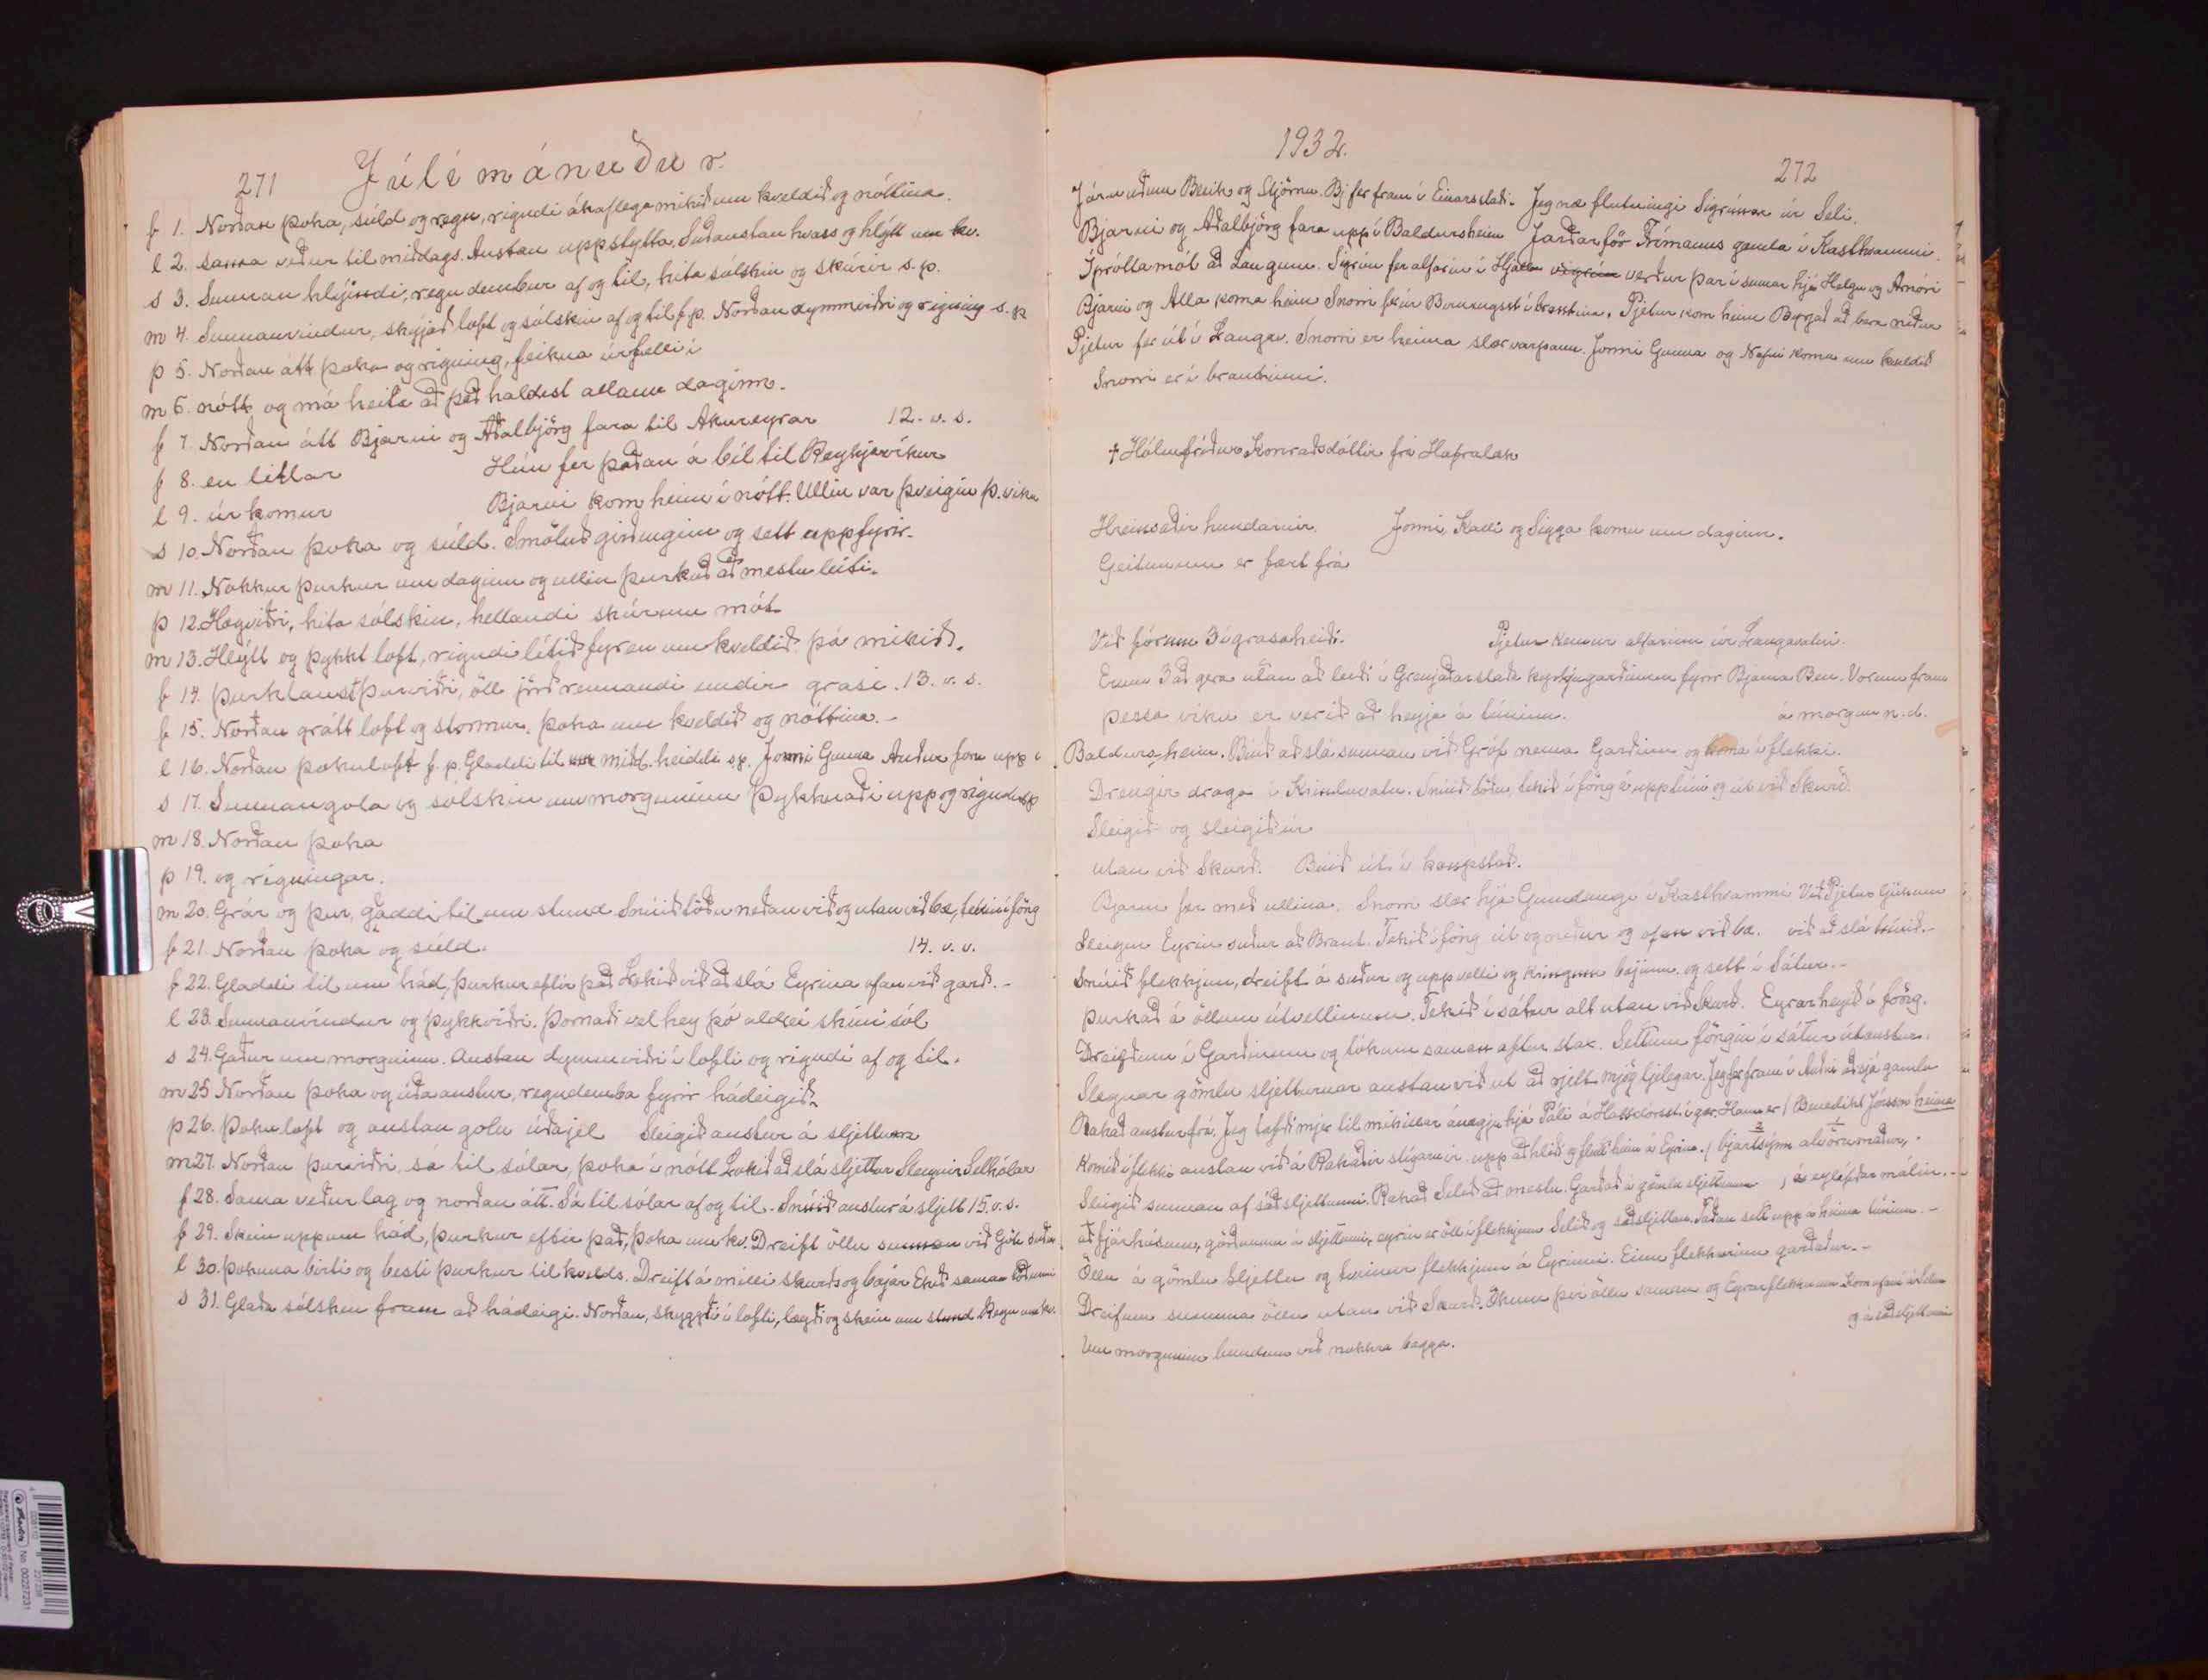 271 Júlímánuður.
f 1. Norðan þoka, súld og regn, rigndi ákaflega mikið um kveldið og nóttina.
l 2. sama veður til miðdags. Austan uppstytta, Suðaustan hvass og hlýtt um kv.
s 3. Sunnan hlýindi, regn dembur af og til, hita sólskin og skúrir s. p.
m 4. Sunnanvindur, skýjað loft og sólskin af og til f. p. Norðan dymmviðri og rigning s. p
þ 5. Norðan átt þoka og rigning, feikna úrfelli í
m 6. nótt og má heita að það haldist allann daginn.
f 7. Norðan átt Bjarni og Aðalbjörg fara til Akureyrar 12. v. s.
f 8. en litlar Hún fer þaðan á bíl til Reykjavíkur
l 9. úrkomur Bjarni kom heim í nótt. Ullin var þveigin þ. viku
s 10. Norðan þoka og súld. Smöluð girðingin og sett upp fyrir.
m 11. Nokkur þurkur um daginn og ullin þurkuð að mestu leiti.
þ 12. Hægviðri, hita sólskin, hellandi skúr um mót
m 13. Hlýtt og þykkt loft, rigndi lítið fyr en um kveldið þá mikið.
f 14. Þurklaust þurviðri, öll jörð rennandi undir grasi. 13. v. s.
f 15. Norðan grátt loft og stormur. Þoka um kveldið og nóttina. -
l 16. Norðan þokuloft f. p. Gladdi til um midd. heiddi sp. Jonni Gunna Auður foru upp í
s 17. Sunnangola og sólskin um morguninn Þykknaði upp og rigndi s p
m 18. Norðan þoka
þ 19. og rigningar.
m 20. Grár og þur, gladdi til um stund Snúið töðu neðan við og utan við bæ, tekin í föng
f 21. Norðan þoka og súld. 14. v. v.
f 22. Gladdi til um hád, þurkur eftir það Lokið við að slá Eyrina ofan við garð. -
l 23. Sunnanvindur og þykkviðri. Þornaði vel hey þó aldrei skini sól
s 24. Gaður um morguninn. Austan dymmviðri í lofti og rigndi af og til.
m 25 Norðan þoka og úða austur, regndemba fyrir hádeigið.
þ 26. Þokuloft og austan gola úðajel Sleigið austur á sljettum
m 27. Norðan þurviðri, sá til sólar, þoka í nótt Lokið að slá sljettur Slegnir Selhólar
f 28. Sama veðurlag og norðan átt. Sá til sólar af og til. Snúið austur á sljett 15. v. s.
f 29. Skein upp um hád, þurkur eftir það, þoka um kv. Dreift öllu sunnan við Götu suður
l 30. Þokuna birti og besti þurkur til kvelds. Dreift á milli skurðs og bæjar Ekið saman töðunni
s 31. Glaða sólskin fram að hádeigi. Norðan, skyggði í lofti, lægði og skein um stund Regn um kv.
1932.
272
Járnuðum Bleik og Stjörnu. Bj fer fram í Einarsstaði. Jeg næ flutningi Sigrúnar úr Seli.
Bjarni og Aðalbjörg fara upp í Baldursheim Jarðarför Frímanns gamla í Kasthvammi.
Íþróttamót að Laugum. Sigrún fer alfarin í Hjalla verður þar í sumar hjá Helgu og Arnóri
Bjarni og Alla koma heim Snorri fer úr Brúnagst í brautina. Pjetur kom heim Byrjað að bera niður
Pjetur fer út í Laugar. Snorri er heima slær varpann. Jonni Gunna og Nafni komu um kveldið
Snorri er í brautinni.
+ Hólmfríður Konraðsdóttir frá Hafralæk
Hreinsaðir hundarnir. Jonni, Kalli og Sigga komu um daginn.
Geitunum er fært frá
Við fórum 3 í grasaheiði. Pjetur kemur alfarinn úr Laugavatni.
Erum 3 að gera utan að leiði í Grenjaðarstaða kyrkjugarðinum fyrir Bjarna Ben. Vorum fram
þessa viku er verið að heyja á túninu. á morgun n. d.
Baldursheim. Búið að slá sunnan við Gróf nema Garðinn og koma í flekki.
Drengir draga í Kringluvatn. Snúið töðu, tekið í föng á upptúni og út við Skurð.
Sleigið og sleigið úr
utan við Skurð. Búið út í kaupstað.
Bjarni fer með ullina. Snorri slær hjá Gunnlaugi í Kasthvammi Við Pjetur ljúkum
Sleigin Eyrin suður að Braut. Tekið í föng út og niður og ofan við bæ. við að slá túnið. -
Snúið flekkjum, dreift á suður og uppvelli og kringum bæjinn og sett í Sátur. -
þurkað á öllum útvellinum. Tekið í sátur alt utan við Skurð. Eyrarheyið í föng.
Dreifðum í Garðinum og tókum saman aftur strax. Settum föngin í sátur útaustur.
Slegnar gömlu sljetturnar austan við ut að sjett mjög ljelegar. Jeg fer fram í Auðni að sjá gamla
Rakað austurfrá. Jeg tafði mjer til mikillar ánægju hjá Páli á Halldórsst í gær. Hann er / Benedikt Jónsson heima
Komið í flekki austan við á Rakaðir stígarnir upp að hlið og flutt heim á Eyrina. / bjartsýnn alvörumaður,
Sleigið sunnan af sáðsljettunni. Rakað Selið að mestu. Garðað á gömlu sljettunum, á eylífðar málin. -
að fjárhúsum, görðunum á sljettunni, eyrin er öll í flekkjum Selið og sáðsljettan. Taðan sett upp á heima túninu. -
Öllu á gömlu Sljettu og tveimur flekkjum á Eyrinni. Einn flekkurinn garðaður. -
Dreifum sumum öllu utan við Skurð. Ökum því öllu saman og Eyrarflekknum Kom ofaní í Selin
og á sáðsljettunni
Um morguninn bundum við nokkra bagga.